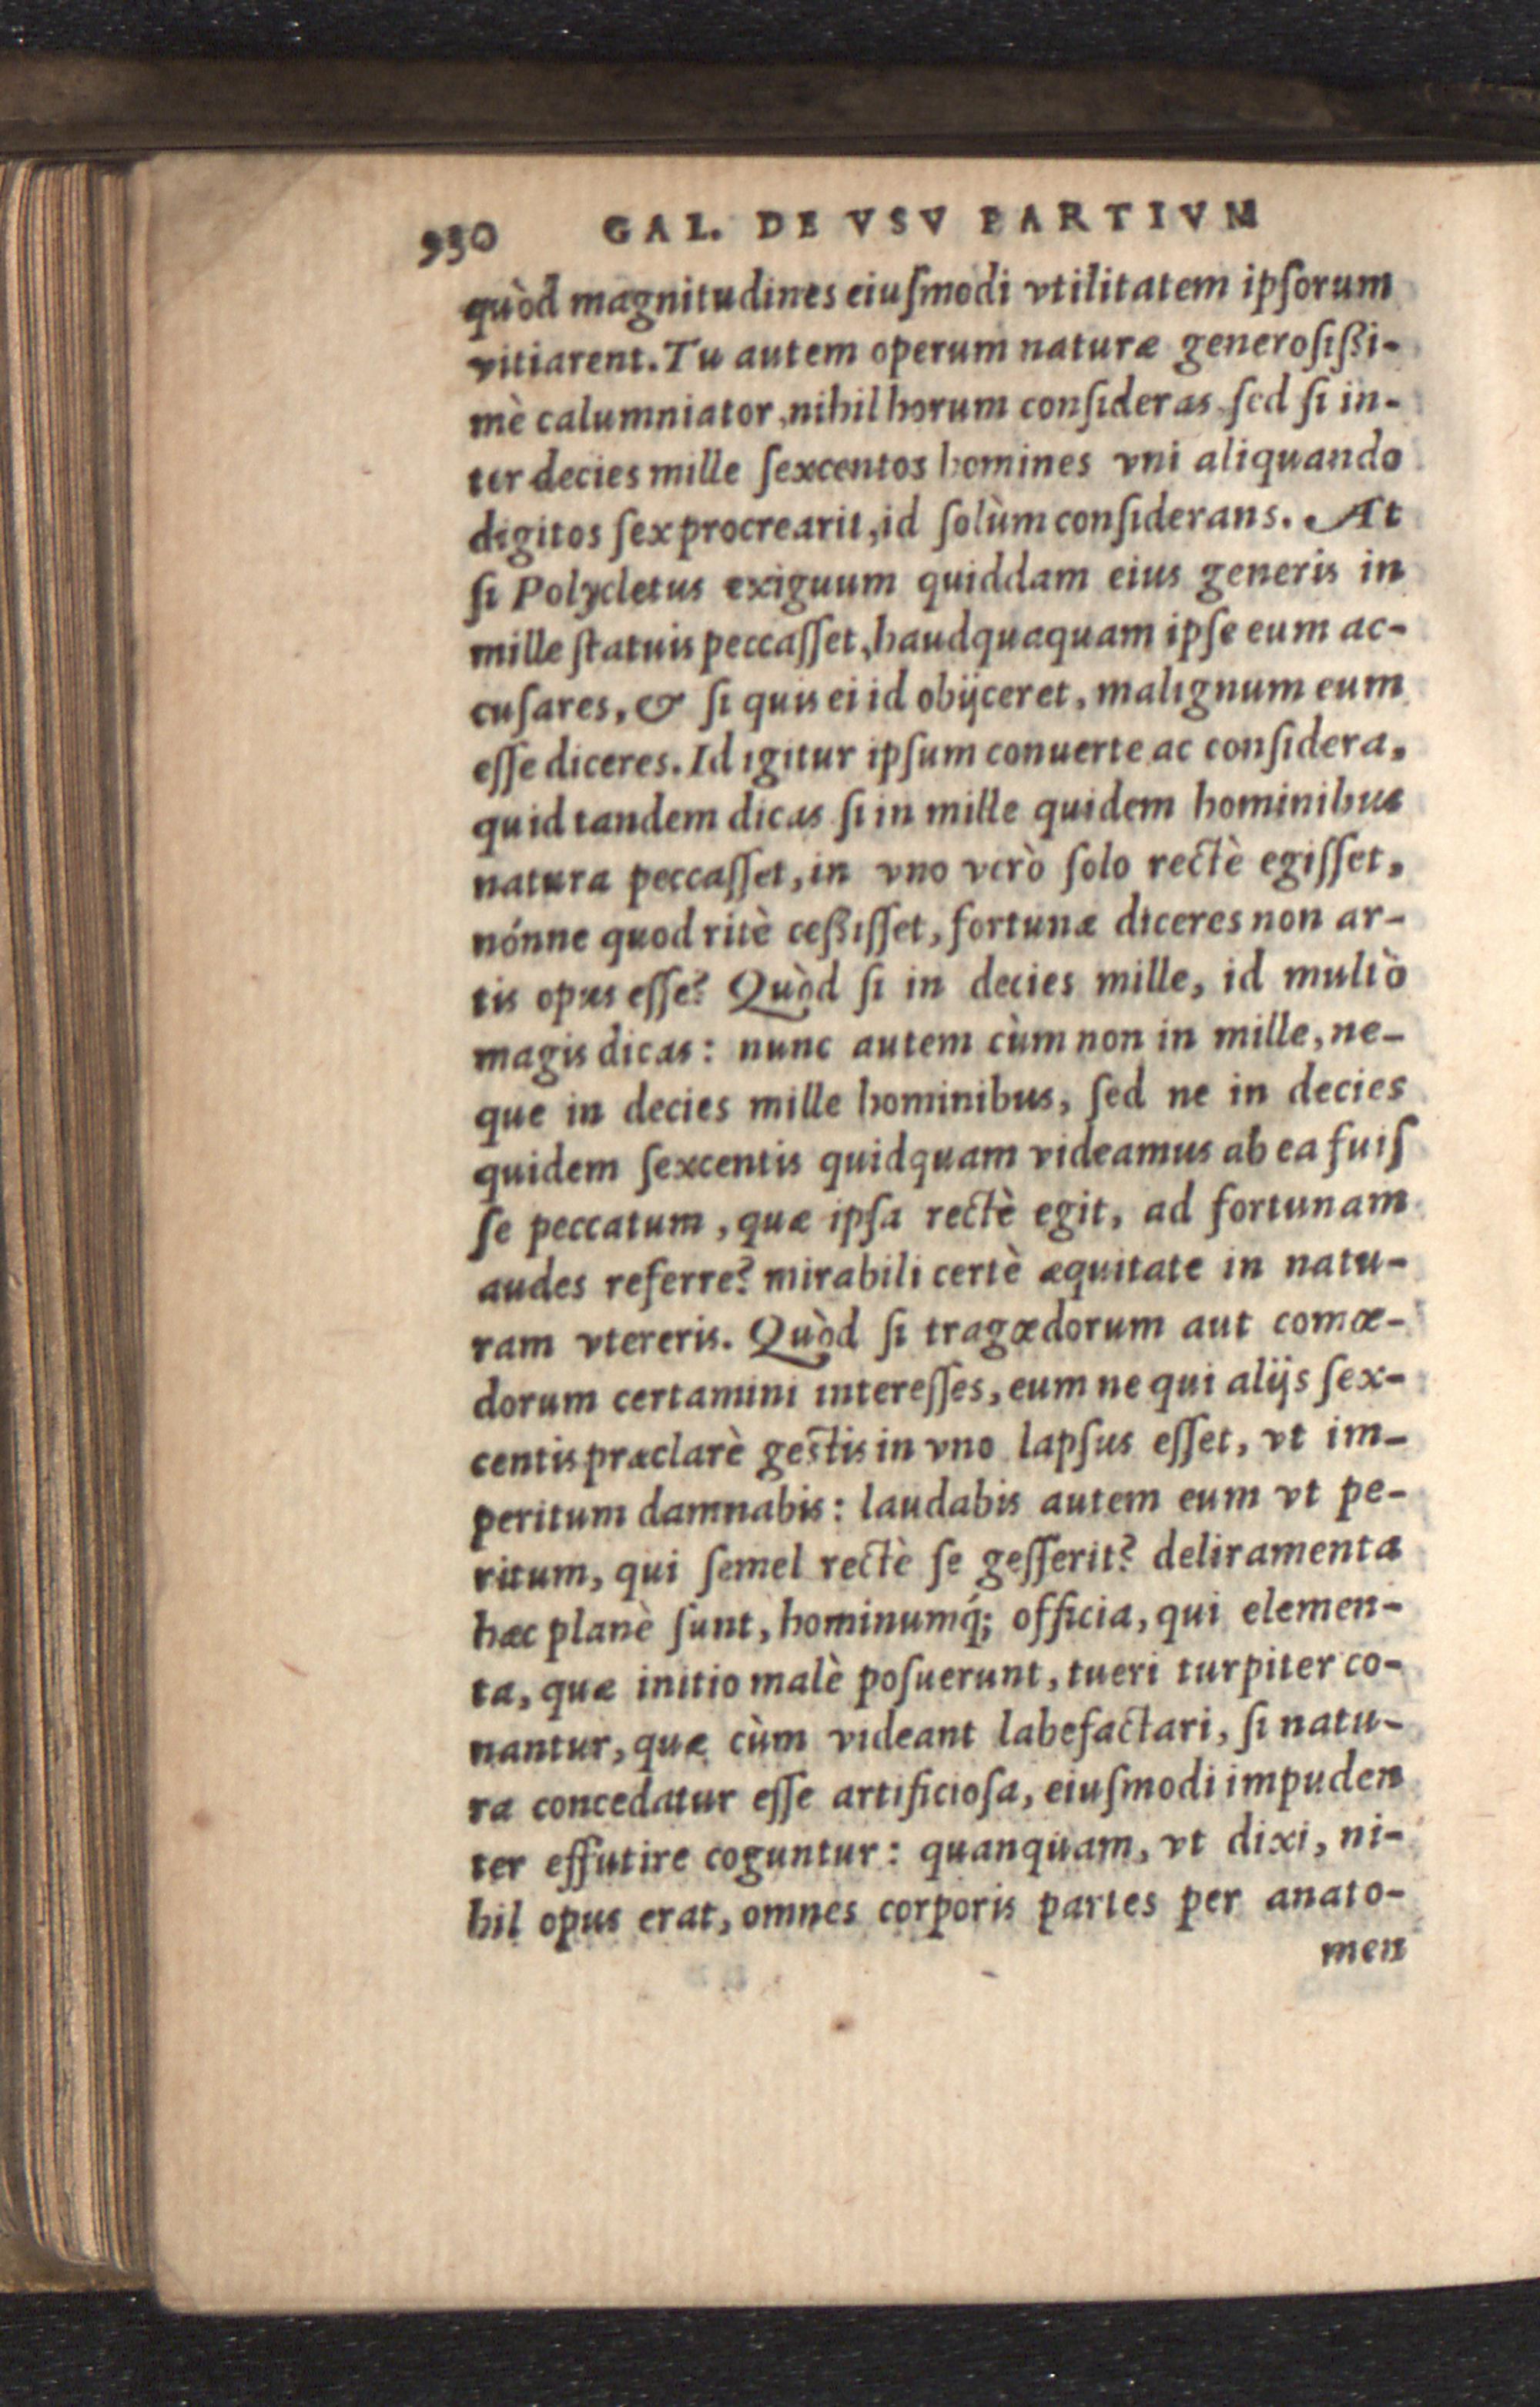 930 GAL. DE VSV PARTIVM
quòd magnitudines eiuſmodi vtilitatem ipſorum
vitiarent. Tu autem operum naturæ generoſißi-
mè calumniator, nihil horum conſideras, ſed ſi in-
ter decies mille ſexcentos homines vni aliquando
digitos ſex procrearit, id ſolùm conſiderans. At
ſi Polycletus exiguum quiddam eius generis in
mille ſtatuis peccaſſet, haudquaquam ipſe eum ac-
cuſares, & ſi quis ei id obijceret, malignum eum
eſſe diceres. Id igitur ipſum conuerte ac conſidera,
quid tandem dicas ſi in mille quidem hominibus
natura peccaſſet, in vno verò ſolo rectè egiſſet,
nónne quod ritè ceßiſſet, fortunæ diceres non ar-
tis opus eſſe? Quòd ſi in decies mille, id multò
magis dicas: nunc autem cùm non in mille, ne-
que in decies mille hominibus, ſed ne in decies
quidem ſexcentis quidquam videamus ab ea fuiſ
ſe peccatum, quæ ipſa rectè egit, ad fortunam
audes referre? mirabili certè æquitate in natu-
ram vtereris. Quòd ſi tragœdorum aut comœ-
dorum certamini intereſſes, eum ne qui alijs ſex-
centis præclarè geſtis in vno lapſus eſſet, vt im-
peritum damnabis: laudabis autem eum vt pe-
ritum, qui ſemel rectè ſe geſſerit? deliramenta
hæc planè ſunt, hominumq́; officia, qui elemen-
ta, quæ initio malè poſuerunt, tueri turpiter co-
nantur, quæ cùm videant labefactari, ſi natu-
ra concedatur eſſe artificioſa, eiuſmodi impuden
ter effutire coguntur: quanquam, vt dixi, ni-
hil opus erat, omnes corporis partes per anato-
men